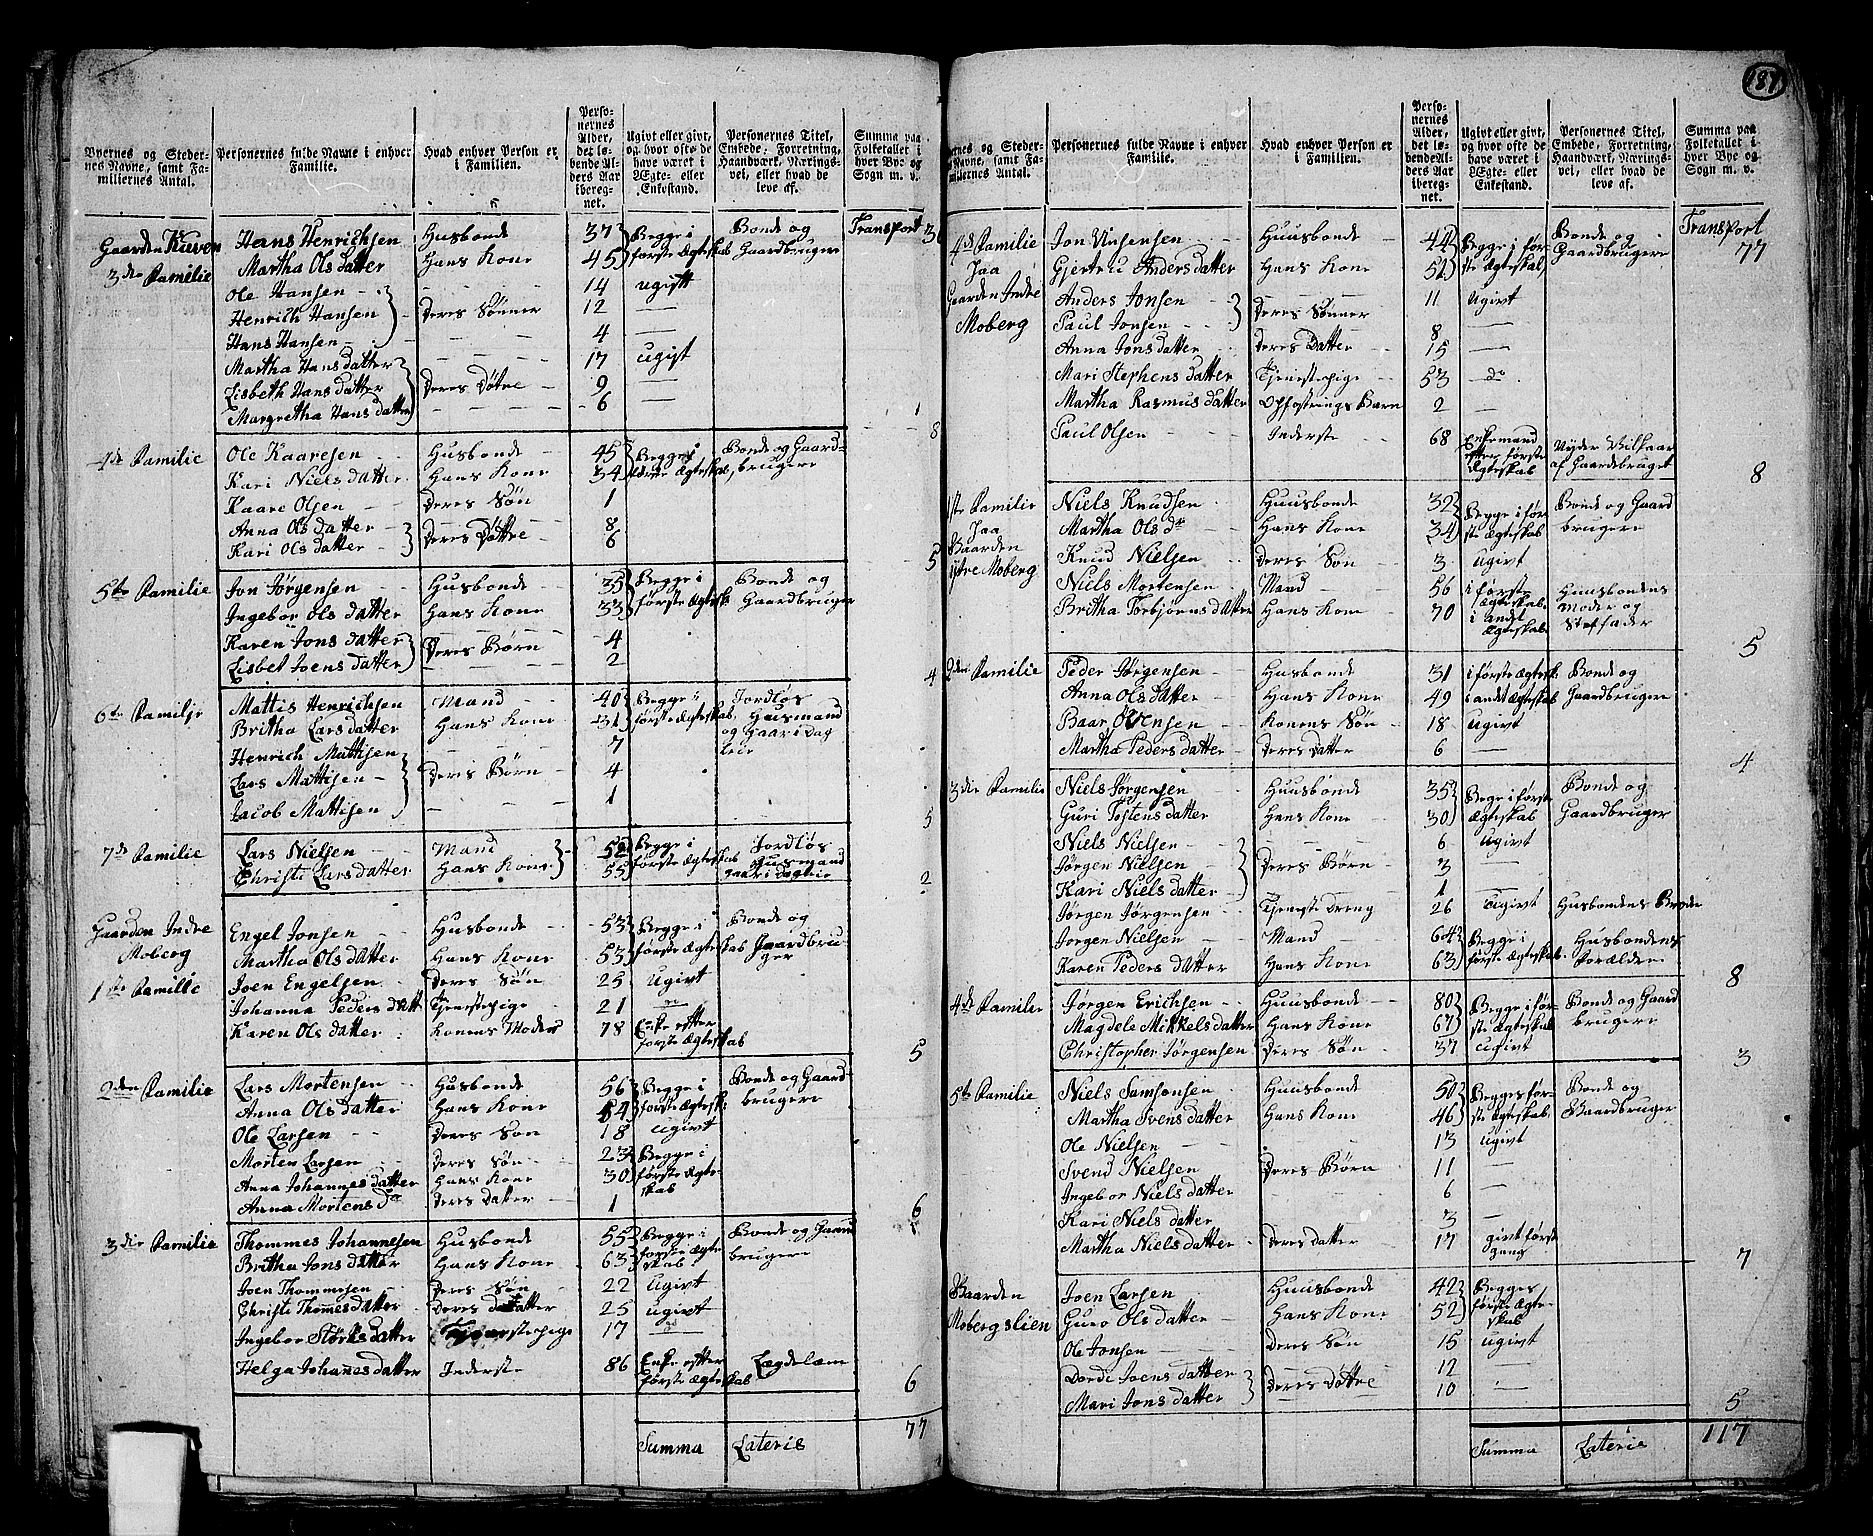 187
Byernes og Steder-
nes Navne, samt Fa-
miliernes Antal.
Personernes fulde Navne i enhver
Familie.
Hvad enhver Person er
i Familien.
Perso-
nernes
Alder,
det lø-
bende Al-
ders Aar
iberegn-
net.
Ugivt eller givt,
og hvor ofte de
have været i
Ægte- eller
Enkestand.
Personernes Titel,
Embede, Forretning,
Haandværk, Nærings-
vei, eller hvad de
leve af.
Summa paa
Folketallet i
hver Bye og
Sogn m. v.
Transport
Gaarden Kuven Hans Henrichsen Husbonde 37 Begge i Bonde og
3die Familie Martha Ols datter Hans Kone 45 første Ægteskab Gaardbrugere
Ole Hansen 14 ugivt
Henrich Hansen Deres Sønner 12 —
Hans Hansen 4 —
Martha Hans datter 17 ugift
Lisbeth Hans datter Deres Døtre 9 —
Margretha Hans datter 6 —
8
4de Familie Ole Kaaresen Husbonde 45 Begge i Bonde og Gaard-
Kari Niels datter Hans Kone 34 første Ægteskab brugere
Kaare Olsen Deres Søn 1
Anna Ols datter Deres Døttre 8
Kari Ols datter 6
5
5te Familie Jon Jørgensen Husbonde 35 Begge i Bonde og
Ingebor Ols datter Hans Kone 33 første Ægtesk. Gaardbruger
Karen Jons datter Deres Børn 4
Lisbet Joens datter 2
4
6te Familie Mattis Henrichsen Mand 40 Begge i Jordløs
Britha Lars datter Hans Kone 31 første Ægteskab Husmand
Henrich Mattisen 7 og Gaar i Dag
Lars Mattisen Deris Børn 4 leie
Jacob Mattisen 1
5
7de Familie Lars Nielsen Mand 52 Begge i Jordløs
Christi Lars datter Hans Kone 55 første Ægteskab Husmand
gaar i dagleie
2
Gaarden Indre Engel Jonsen Husbonde 53 Begge i Bonde og
Moberg Martha Ols datter Hans Kone 53 første Ægteskab Gaardbru-
ger
1ste Familie Joen Engelsen Deres Søn 25 Ugivt
Johanna Peders datt Tjenestepige 21 —
Karen Ols datter Konens Moder 78 Enke efter
første Ægteskab
5
2den Familie Lars Mortensen Husbonde 56 Begge i Bonde og Gaard-
Anna Ols datter Hans Kone første Ægtesk. brugere
Ole Larsen Deres Søn 18 ugivt
Morten Larsen Deres Søn 23 Begge i
Anna Johannes datter Hans Kone 30 første Ægte-
skab
Anna Mortens Dr Deres datter 1
6
3die Familie Thommes Johannesen Husbonde 55 Begge i Bonde og Gaard
Britha Jons datter Hans Kone 63 første Ægte- brugere
skab
Joen Thommesen Deres Søn 22 Ugivt
Christi Thomes datter Deres datter 25 ugivt
Ingebor Størks datter Tjenestepige 17 —
Helga Johanes datter Inderste 86 Enke efter Lægdslæm
første Ægteskab
6
Summa Lateris 77
Byernes og Steder-
nes Navne, samt Fa-
miliernes Antal.
Personernes fulde Navne i enhver
Familie.
Hvad enhver Person er
i Familien.
Perso-
nernes
Alder,
det lø-
bende Al-
ders Aar
iberegn-
net.
Ugivt eller givt,
og hvor ofte de
have været i
Ægte- eller
Enkestand.
Personernes Titel,
Embede, Forretning,
Haandværk, Nærings-
vei, eller hvad de
leve af.
Summa paa
Folketallet i
hver Bye og
Sogn m. v.
Transport
77
4de Familie Jon Huusbonde 44 Begge i før- Bonde og
paa Gjertru Anders datter Hans Kone ste Ægteskab Gaardbrugere
Gaarden Indre Anders Jonsen Deres Sønner 11 Ugivt
Moberg Paul Jonsen 8 —
Anna Jons datter Deres Datter 15 —
Mari Stephens datter Tjenestepige 53 do
Martha Rasmus datter Opfostrings Barn 2 —
Paul Olsen Inderste 68 Enkemand Nyder Vilkaar
efter første af Gaardbruget
Ægteskab
8
1ste Familie Niels Knudsen Huusbonde 32 Begge i før- Bonde og Gaard
paa Martha Ols dr Hans Kone 34 ste Ægteskab brugere
Gaarden Knud Nielsen Deres Søn 3 Ugivt
ystre Moberg Niels Mortensen Mand 56 i første Huusbondens
Ægteskab Moder og
Britha Torbjørns datter Hans Kone 70 i andet Stiffader
Ægteskab
5
2den Familie Peder Jørgensen Husbonde 31 i første Ægtesk. Bonde og
Anna Ols datter Hans Kone 49 i andet Ægteskab Gaardbrugere
Baar Konens Søn 18 Ugivt
Martha Peders datter Deres datter 6 —
4
3die Familie Niels Jørgensen Huusbonde 35 Begge i første Bonde og
Guri Tostens datter Hans Kone 30 Ægteskab Gaardbruger
Niels Nielsen 6 Ugivt
Jørgen Nielsen Deres Børn 3 —
Kari Niels datter 1 —
Jørgen Jørgensen Tjeneste Dreng 26 Ugivt Husbondens Brode
Jørgen Nielsen Mand 64 Begge i Husbondens
Karen Peders datter Hans Kone 63 første Ægteskab. Forældre
8
4de Familie Jørgen Erichsen Huusbonde 80 Begge i før- Bonde og Gaard
Magdele Mikkels datter Hans Kone 67 ste Ægteskab brugere
Christopher Jørgensen Deres Søn 37 Ugivt
3
5te Familie Niels Samsonsen Huusbonde 50 Begges før- Bonde og
Martha Svens datter Hans Kone 46 ste Ægteskab Gaardbruger
Ole Nielsen 13 Ugivt
Svend Nielsen Deres Børn 11 —
Ingebor Niels datter 6 —
Kari Niels datter 3 —
Martha Niels datter Deres datter 17 givt først
gang
7
Gaarden Joen Larsen Huusbonde 42 Begges
Mobergslien Guro Ols datter Hans Kone 52 første Ægte-
skab
Ole Jonsen Deres Søn 15 Ugivt
Dordi Joens datter Deres Døttre 12 —
Mari Jons datter 10 —
5
Summa Lateris 117